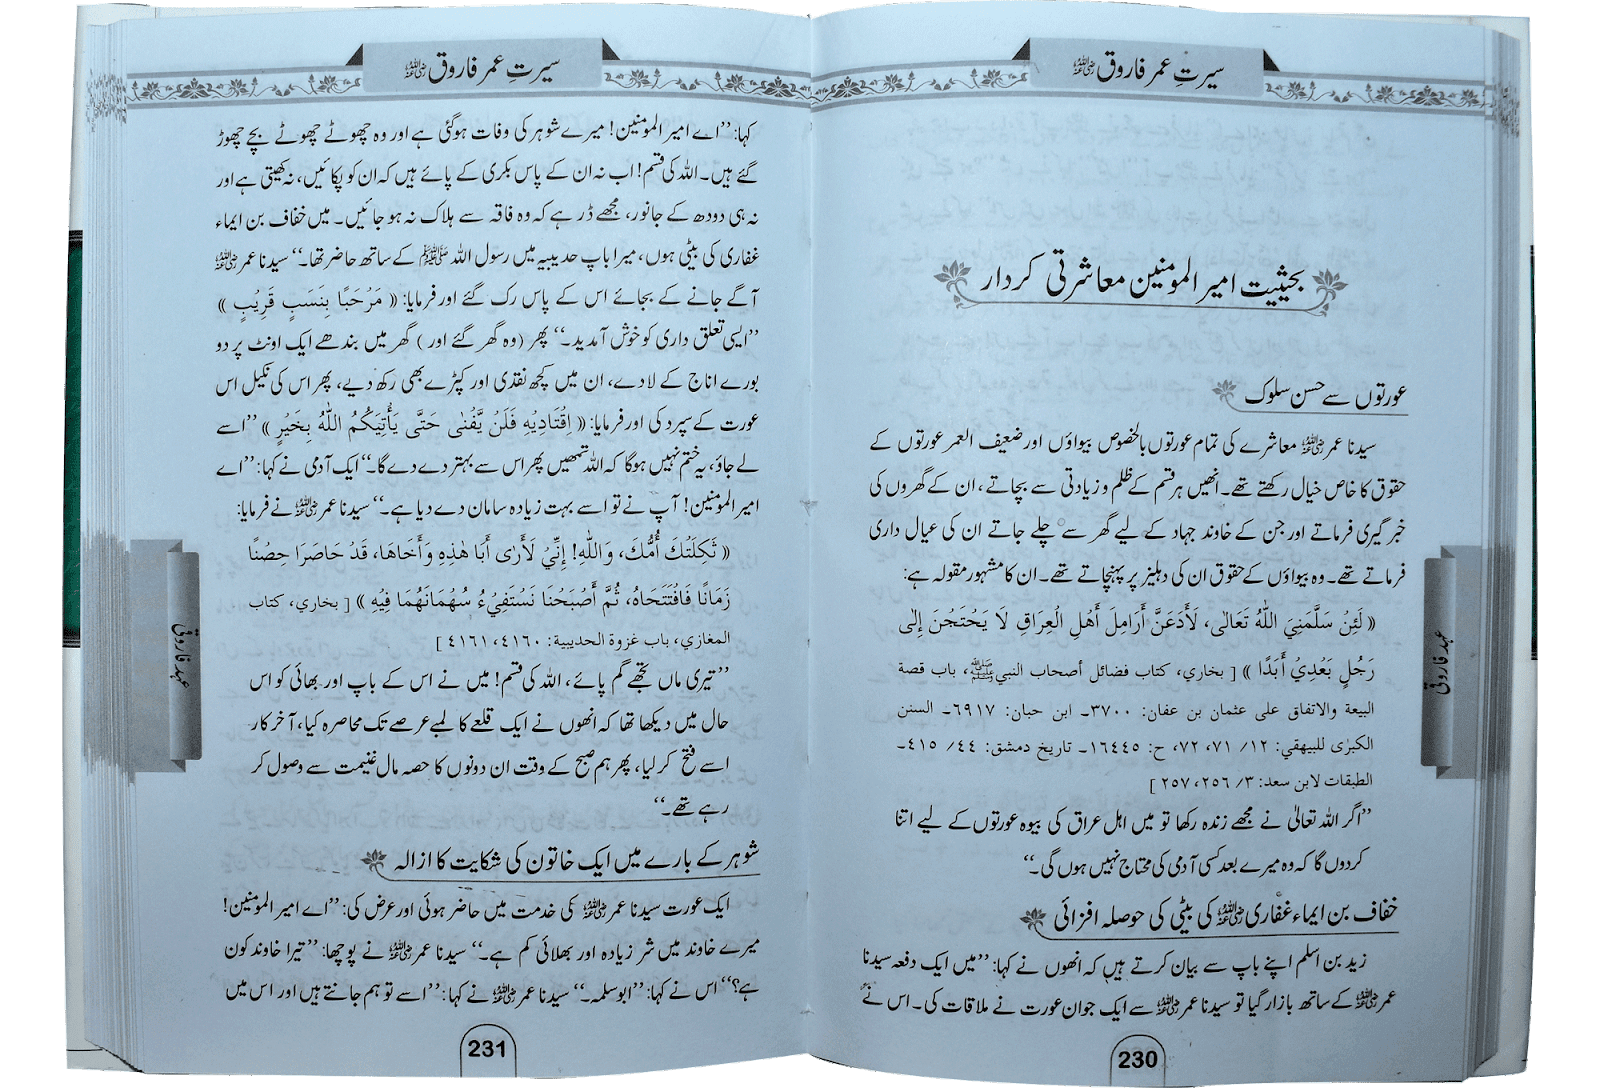 سیرتِ عمر فاروق رضی اللہ عنہ
بحیثیت امیر المومنین معاشرتی کردار
عورتوں سے حسن سلوک
سیدنا عمر رضی اللہ عنہ معاشرے کی تمام عورتوں بالخصوص بیواؤں اور ضعیف العمر عورتوں کے
حقوق کا خاص خیال رکھتے تھے۔ انھیں ہر قسم کے ظلم و زیادتی سے بچاتے، ان کے گھروں کی
خبر گیری فرماتے اور جن کے خاوند جہاد کے لیے گھر سے چلے جاتے ان کی عیال داری
فرماتے تھے۔ وہ بیواؤں کے حقوق ان کی دہلیز پر پہنچاتے تھے۔ ان کا مشہور مقولہ ہے:
« لَئِنْ سَلَّمَنِيَ اللّٰهُ تَعَالٰى، لَأَدَعَنَّ أَرَامِلَ أَهْلِ الْعِرَاقِ لَا يَحْتَجْنَ إِلٰى
رَجُلٍ بَعْدِيْ أَبَدًا » [ بخاري، كتاب فضائل أصحاب النبي ﷺ، باب قصة
البيعة والاتفاق على عثمان بن عفان: ٣٧٠٠۔ ابن حبان: ٦٩١٧۔ السنن
الكبرٰى للبيهقي: ١٢/ ٧١، ٧٢، ح: ١٦٤٤٥۔ تاريخ دمشق: ٤٤/ ٤١٥۔
الطبقات لابن سعد: ٣/ ٢٥٦، ٢٥٧ ]
’’اگر اللہ تعالیٰ نے مجھے زندہ رکھا تو میں اہل عراق کی بیوہ عورتوں کے لیے اتنا
کردوں گا کہ وہ میرے بعد کسی آدمی کی محتاج نہیں ہوں گی۔‘‘
خفاف بن ایماء غفاری رضی اللہ عنہ کی بیٹی کی حوصلہ افزائی
زید بن اسلم اپنے باپ سے بیان کرتے ہیں کہ انھوں نے کہا: ’’میں ایک دفعہ سیدنا
عمر رضی اللہ عنہ کے ساتھ بازار گیا تو سیدنا عمر رضی اللہ عنہ سے ایک جوان عورت نے ملاقات کی۔ اس نے
عہد فاروقی
230
سیرتِ عمر فاروق رضی اللہ عنہ
کہا: ’’اے امیر المومنین! میرے شوہر کی وفات ہوگئی ہے اور وہ چھوٹے چھوٹے بچے چھوڑ
گئے ہیں۔ اللہ کی قسم! اب نہ ان کے پاس بکری کے پائے ہیں کہ ان کو پکائیں، نہ کھیتی ہے اور
نہ ہی دودھ کے جانور، مجھے ڈر ہے کہ وہ فاقہ سے ہلاک نہ ہو جائیں۔ میں خفاف بن ایماء
غفاری کی بیٹی ہوں، میرا باپ حدیبیہ میں رسول اللہ ﷺ کے ساتھ حاضر تھا۔‘‘ سیدنا عمر رضی اللہ عنہ
آگے جانے کے بجائے اس کے پاس رک گئے اور فرمایا: « مَرْحَبًا بِنَسَبٍ قَرِيْبٍ »
’’ایسی تعلق داری کو خوش آمدید۔‘‘ پھر (وہ گھر گئے اور ) گھر میں بندھے ایک اونٹ پر دو
بورے اناج کے لادے، ان میں کچھ نقدی اور کپڑے بھی رکھ دیے، پھر اس کی نکیل اس
عورت کے سپرد کی اور فرمایا: « اِقْتَادِيْهِ فَلَنْ يَّفْنٰى حَتّٰى يَأْتِيَكُمُ اللّٰهُ بِخَيْرٍ » ’’اسے
لے جاؤ، یہ ختم نہیں ہوگا کہ اللہ تمھیں پھر اس سے بہتر دے دے گا۔‘‘ ایک آدمی نے کہا: ’’اے
امیر المومنین! آپ نے تو اسے بہت زیادہ سامان دے دیا ہے۔‘‘ سیدنا عمر رضی اللہ عنہ نے فرمایا:
« ثَكِلَتْكَ أُمُّكَ، وَاللّٰهِ! إِنِّيْ لَأَرٰى أَبَا هٰذِهٖ وَأَخَاهَا، قَدْ حَاصَرَا حِصْنًا
زَمَانًا فَافْتَتَحَاهُ، ثُمَّ أَصْبَحْنَا نَسْتَفِيْءُ سُهْمَانَهُمَا فِيْهِ » [ بخاري، كتاب
المغازي، باب غزوة الحديبية: ٤١٦٠، ٤١٦١ ]
’’تیری ماں تجھے گم پائے، اللہ کی قسم! میں نے اس کے باپ اور بھائی کو اس
حال میں دیکھا تھا کہ انھوں نے ایک قلعے کا لمبے عرصے تک محاصرہ کیا، آخر کار
اسے فتح کر لیا، پھر ہم صبح کے وقت ان دونوں کا حصہ مال غنیمت سے وصول کر
رہے تھے۔‘‘
شوہر کے بارے میں ایک خاتون کی شکایت کا ازالہ
ایک عورت سیدنا عمر رضی اللہ عنہ کی خدمت میں حاضر ہوئی اور عرض کی: ’’اے امیر المومنین!
میرے خاوند میں شر زیادہ اور بھلائی کم ہے۔‘‘ سیدنا عمر رضی اللہ عنہ نے پوچھا: ’’تیرا خاوند کون
ہے؟‘‘ اس نے کہا: ’’ابوسلمہ۔‘‘ سیدنا عمر رضی اللہ عنہ نے کہا: ’’اسے تو ہم جانتے ہیں اور اس میں
عہد فاروقی
231